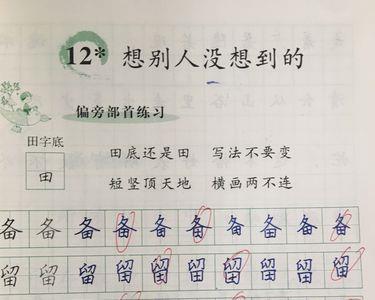 12* 想别人没想到的
偏旁部首练习
田字底
田
田底还是田 写法不要变
短竖顶天地 横画两不连
备 备 备 备 备 备 备 备 备 备
留 留 留 留 留 留 留 留 留 留